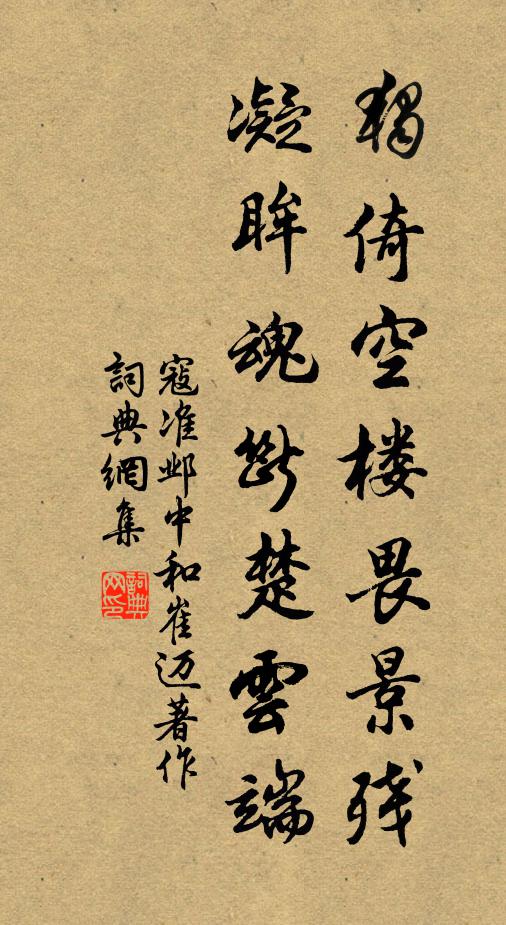 獨倚空楼畏景残
凝眸魂断楚雲端
寇准邺中和崔迈著作
詞典網集
詞典网印